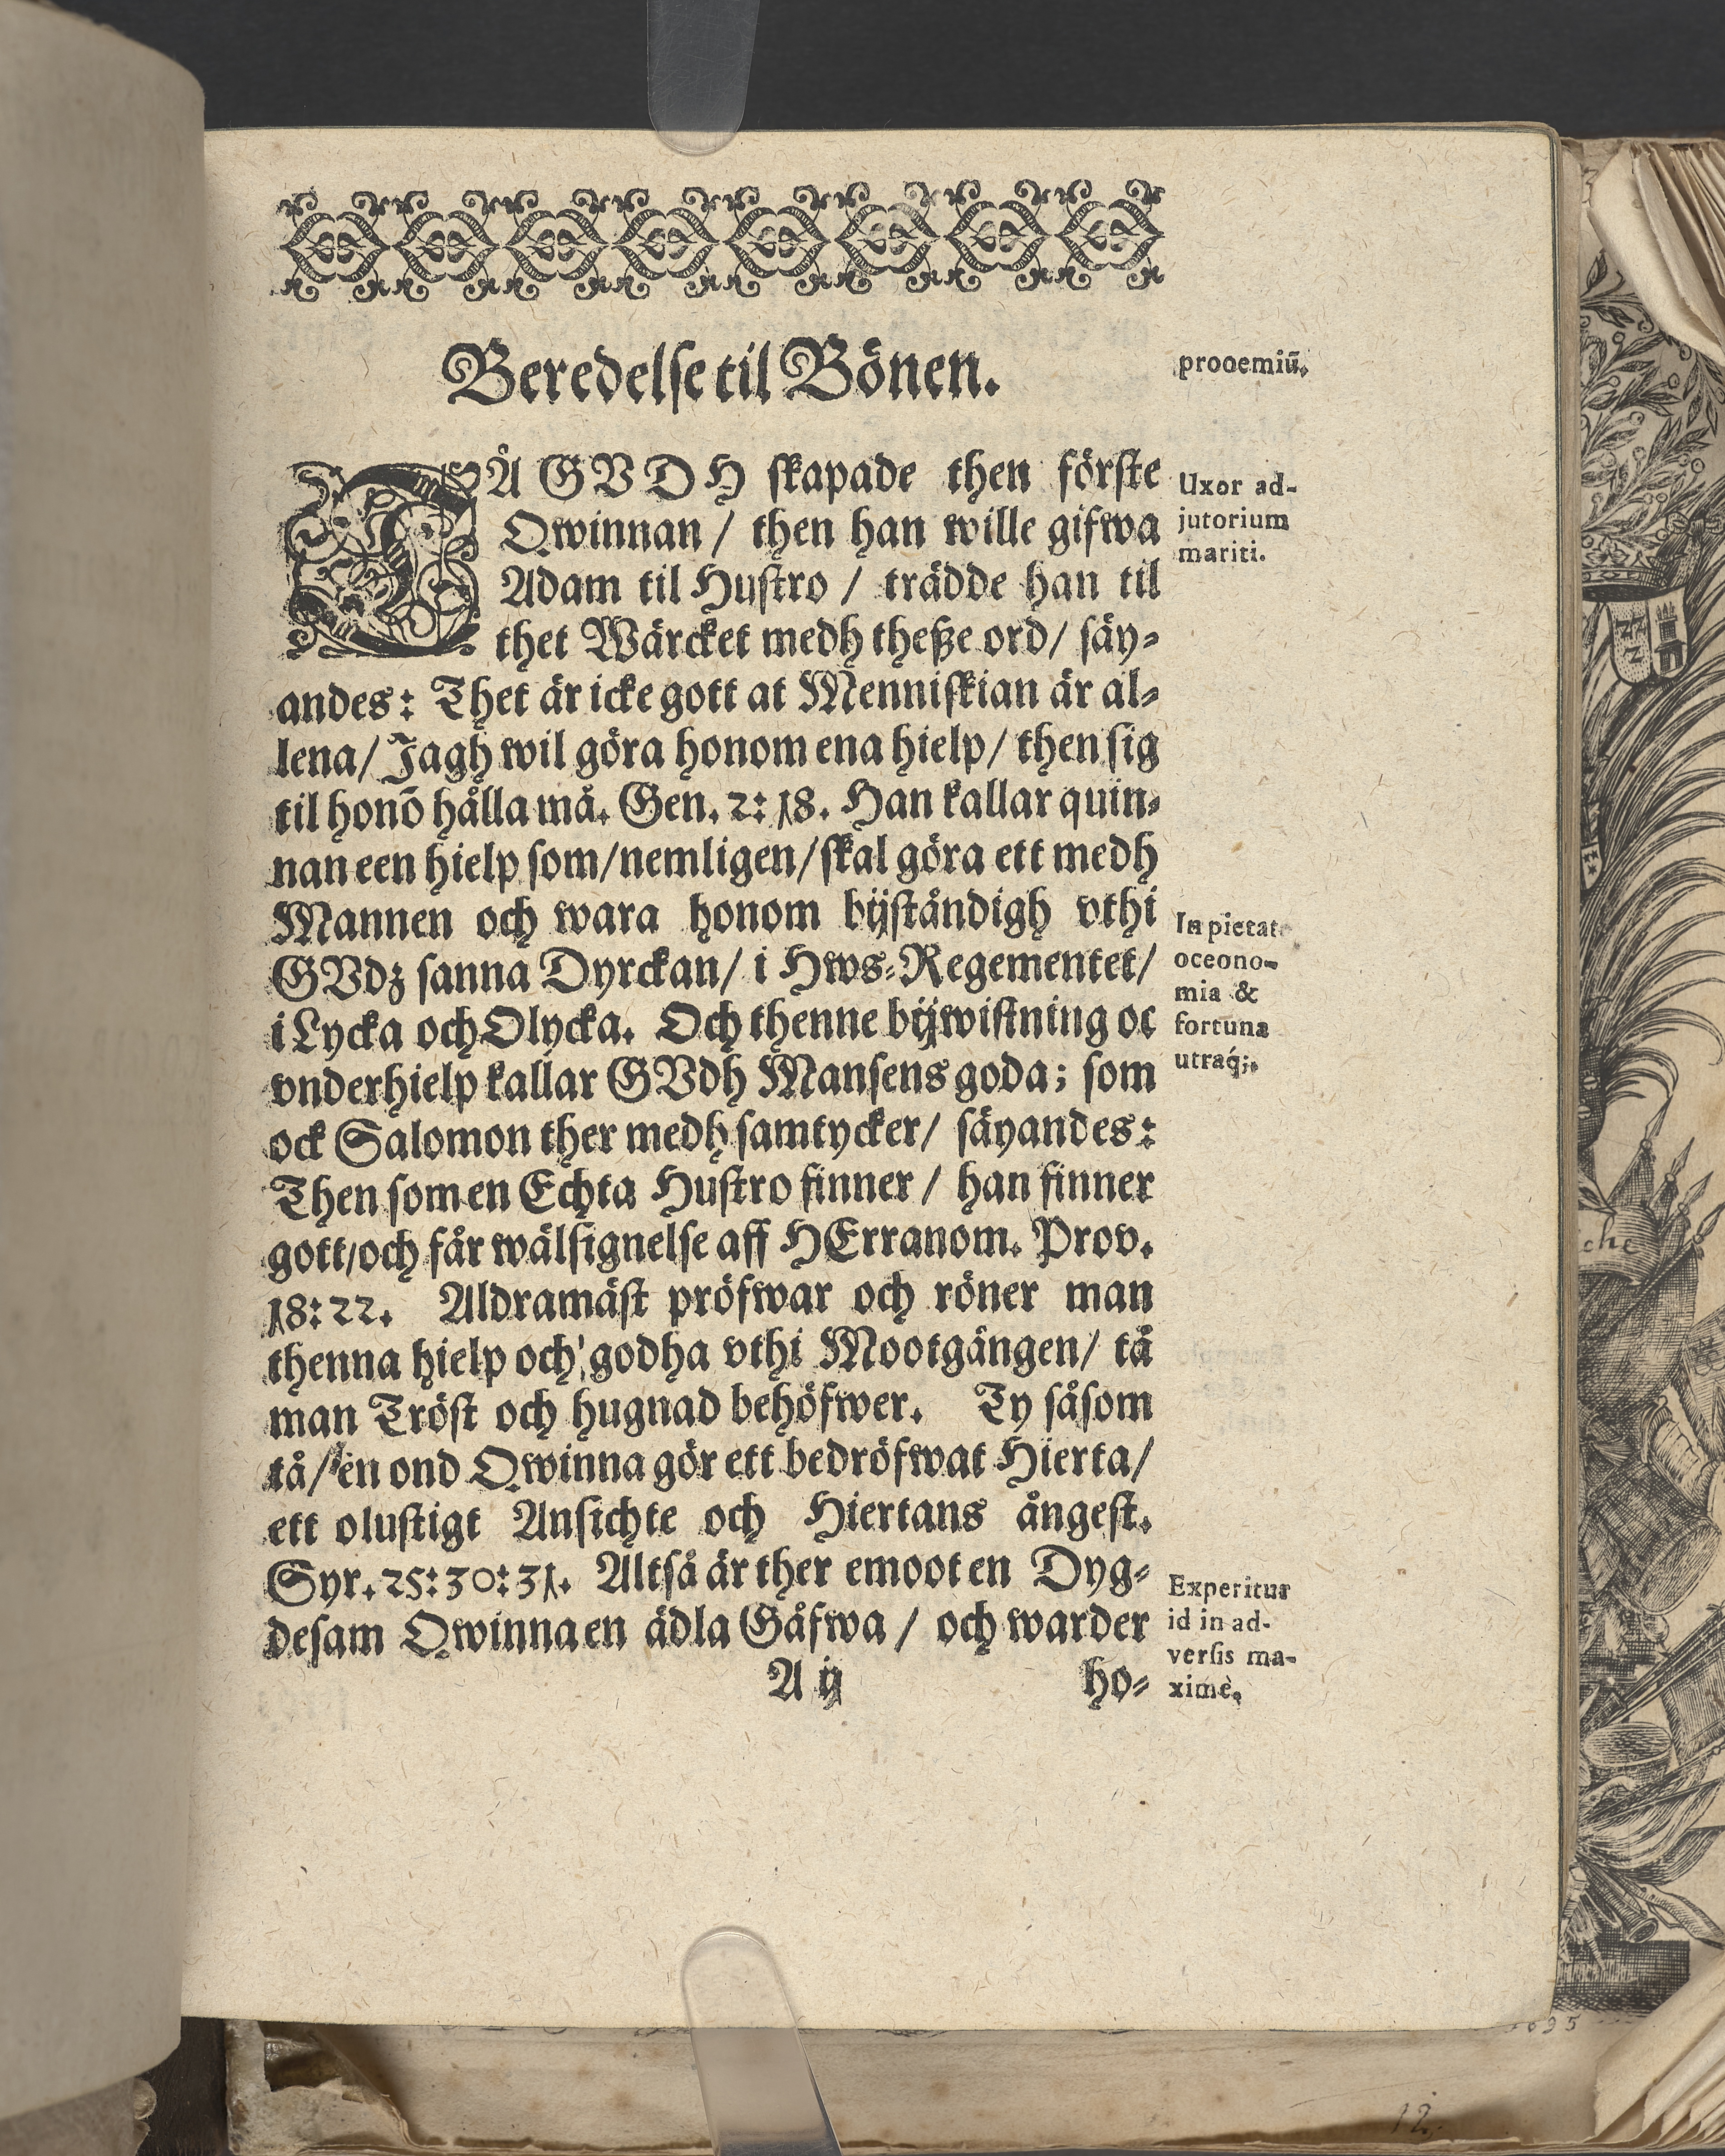 Beredelse til Bönen.
prooemiū.
TÅ GVDH skapade then förste
Qwinnan / then han wille gifwa
Adam til Hustro / trädde han til
thet Wärcket medh theße ord/ säy-
andes: Thet är icke gott at Menniskian är al-
lena/ Jagh wil göra honom ena hielp/ then sig
til honō hålla må. Gen. 2: 18. Han kallar quin-
nan een hielp som/nemligen/skal göra ett medh
Mannen och wara honom bijståndigh vthi
GVdz sanna Dyrckan/ i Hws-Regementet/
i Lycka och Olycka. Och thenne bijwistning oc
vnderhielp kallar GVdh Mansens goda; som
ock Salomon ther medh samtycker/ säyandes:
Then som en Echta Hustro finner / han finner
gott/och får wälsignelse aff HErranom. Prov.
18: 22. Aldramäst pröfwar och röner man
thenna hielp och godha vthi Mootgången/ tå
man Tröst och hugnad behöfwer. Ty såsom
tå/ en ond Qwinna gör ett bedröfwat Hierta/
ett olustigt Ansichte och Hiertans ångest.
Syr. 25: 30: 31. Altså är ther emoot en Dyg-
desam Qwinna en ädla Gåfwa / och warder
A ij
ho-
Uxor ad-
jutorium
mariti.
In pietate
oceono-
mia &
fortuna
utraq́;.
Experitur
id in ad-
versis ma-
ximè.
che
12.